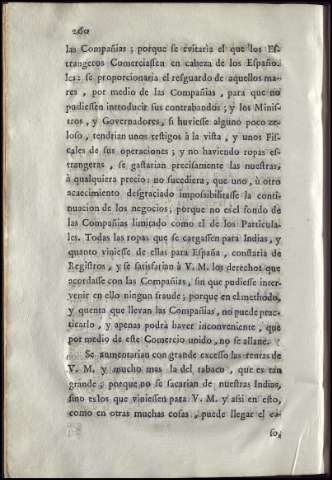 260
las Compañias; porque se evitaria el que los Es-
trangeros Comerciassen en cabeza de los Españo-
les: se proporcionaria el resguardo de aquellos ma-
res, por medio de las Compañias, para que no
pudiessen introducir sus contrabandos; y los Minis-
tros, y Governadores, si huviesse alguno poco ze-
loso, tendrian unos testigos à la vista, y unos Fis-
cales de sus operaciones; y no haviendo ropas es-
trangeras, se gastarian precisamente las nuestras,
à qualquiera precio: no sucediera, que uno, ù otro
acaecimiento desgraciado imposibilitasse la conti-
nuacion de los negocios; porque no es el fondo de
las Compañias limitado como el de los Particula-
les. Todas las ropas que se cargassen para Indias, y
quanto viniesse de ellas para España, constaria de
Registros, y se satisfarian à V. M. los derechos que
acordasse con las Compañias, sin que pudiesse inter-
venir en ello ningun fraude; porque en el methodo,
y quenta que llevan las Compañias, no puede prac-
ticarlo, y apenas podrà haver inconveniente, que
por medio de este Comercio unido, no se allane.
Se aumentarian con grande excesso las rentas de
V. M. y mucho mas la del tabaco, que es tan
grande; porque no se sacarian de nuestras Indias,
sino es los que viniessen para V. M. y assi en esto,
como en otras muchas cosas, puede llegar el ca-
so,